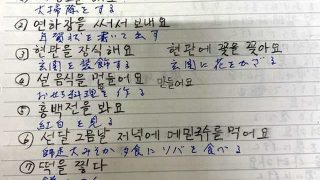 大掃除をする
② 연하장을 써서 보내요
年賀状を書いて出す
③ 현관을 장식해요 현관에 꽃을 꽂아요
玄関を装飾する 玄関に花をかざる
④ 설 음식을 만들어요 만들어요
おせち料理を作る
⑤ 홍백전을 봐요
紅白を見る
⑥ 섣달 그믐날 저녁에 메밀국수를 먹어요
大みそか 夕食にソバを食べる
⑦ 떡을 찧다